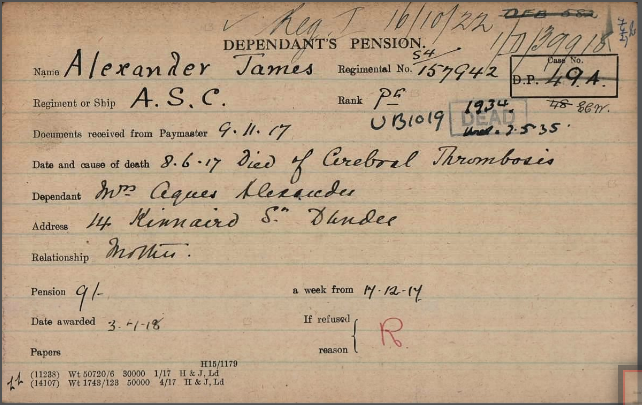 Reg. J 16/10/22
DEPENDANT'S PENSION.
Name Alexander James Regimental No. S4/157942
Case No.
D.P. 49.A.
Regiment or Ship A.S.C. Rank Pte
UB1019
1934.
DEAD
Documents received from Paymaster 9.11.17
Date and cause of death 8.6.17 Died of Cerebral Thrombosis
Dependant Mrs Agnes Alexander
Address 14 Kinnaird St Dundee
Relationship Mother.
Pension 9/- a week from 17.12.17
Date awarded 3-1-18 If refused
reason R.
Papers
H15/1179
(11238) Wt 50720/6 30000 1/17 H & J, Ld
(14107) Wt 1743/123 50000 4/17 H & J, Ld